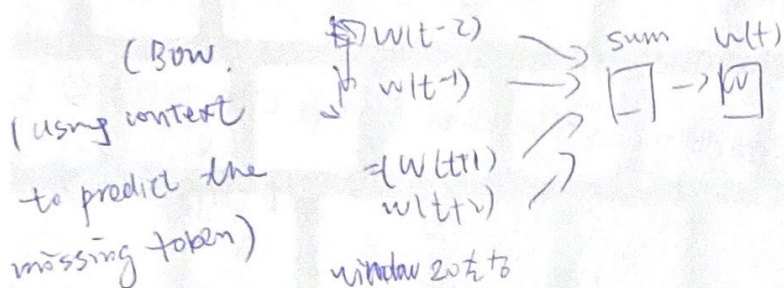 CBOW.
(using context
to predict the
missing token)
w(t-2)
w(t-1)
w(t+1)
w(t+2)
sum
w(t)
window 20左右